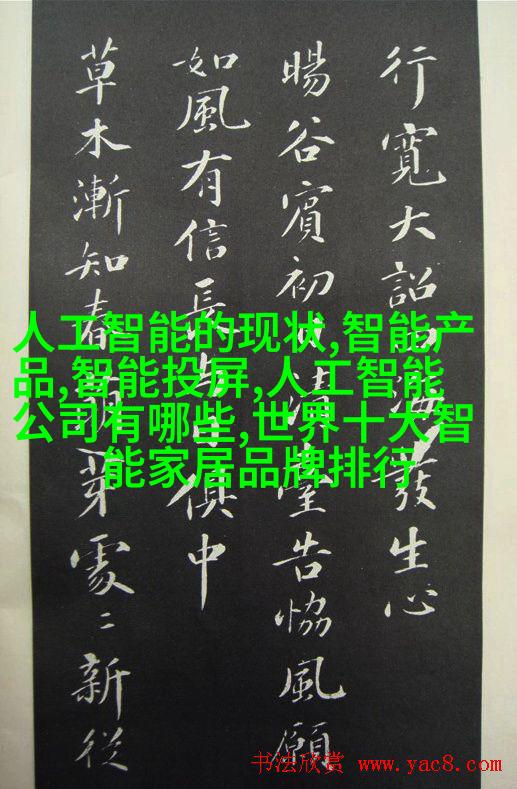 行寬大詔四海發生心
暘谷賓初日清臺告協風願
如風有信長與日俱中
草木漸知春萌芽處〻新從
人工智能的现状,智能产
品,智能投屏,人工智能
公司有哪些,世界十大智
能家居品牌排行
书法欣赏 www.yac8.com